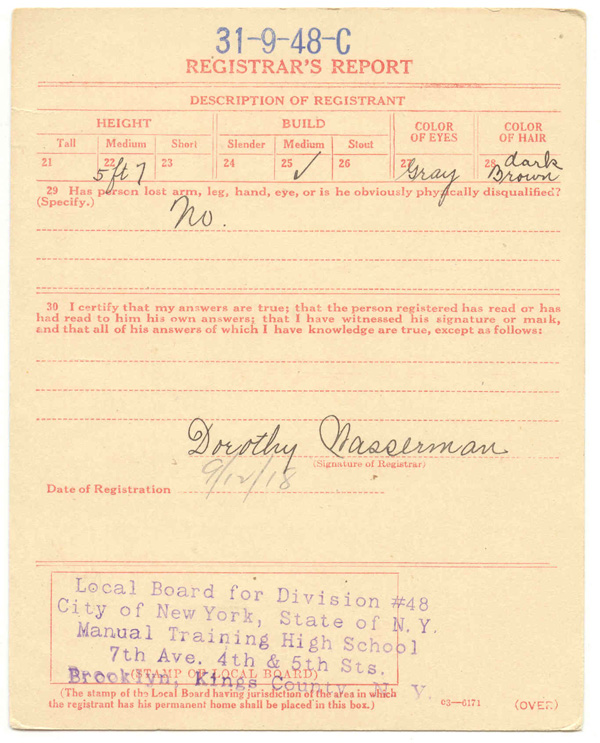 31-9-48-C
REGISTRAR'S REPORT
DESCRIPTION OF REGISTRANT
HEIGHT BUILD COLOR OF EYES COLOR OF HAIR
Tall Medium Short Slender Medium Stout
21 22 5 ft 7 23 24 25 ✓ 26 27 Gray 28 dark Brown
29 Has person lost arm, leg, hand, eye, or is he obviously physically disqualified?
(Specify.)
No.
30 I certify that my answers are true; that the person registered has read or has
had read to him his own answers; that I have witnessed his signature or mark,
and that all of his answers of which I have knowledge are true, except as follows:
Dorothy Wasserman
(Signature of Registrar)
Date of Registration 9/12/18
Local Board for Division #48
City of New York, State of N.Y.
Manual Training High School
7th Ave. 4th & 5th Sts.
(STAMP OF LOCAL BOARD)
Brooklyn, Kings County, N. Y.
(The stamp of the Local Board having jurisdiction of the area in which
the registrant has his permanent home shall be placed in this box.)
03—6171 (OVER)